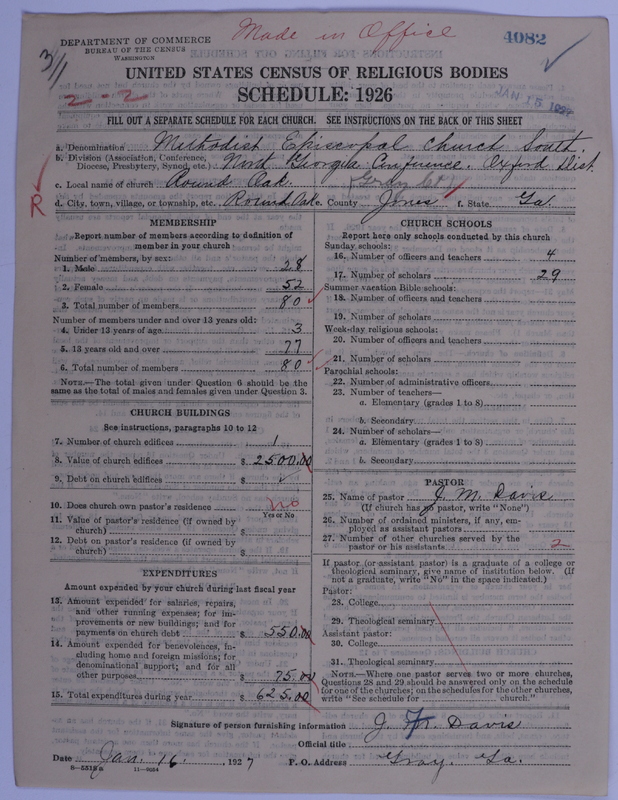 Made in Office
4082
DEPARTMENT OF COMMERCE
BUREAU OF THE CENSUS
WASHINGTON
3/1
2-2
UNITED STATES CENSUS OF RELIGIOUS BODIES
SCHEDULE: 1926
JAN 15 1927
FILL OUT A SEPARATE SCHEDULE FOR EACH CHURCH. SEE INSTRUCTIONS ON THE BACK OF THIS SHEET
a. Denomination Methodist Episcopal Church South.
b. Division (Association, Conference, Diocese, Presbytery, Synod, etc.) North Georgia Conference. Oxford Dist.
c. Local name of church Round Oak.
d. City, town, village, or township, etc. Round Oak e. County Jones f. State Ga.
R
MEMBERSHIP
Report number of members according to definition of
member in your church
Number of members, by sex:
1. Male 28
2. Female 52
3. Total number of members 80
Number of members under and over 13 years old:
4. Under 13 years of age 3
5. 13 years old and over 77
6. Total number of members 80
NOTE.—The total given under Question 6 should be the
same as the total of males and females given under Question 3.
CHURCH BUILDINGS
See instructions, paragraphs 10 to 12
7. Number of church edifices 1
8. Value of church edifices $ 2500.00
9. Debt on church edifices $
10. Does church own pastor's residence no
Yes or No
11. Value of pastor's residence (if owned by
church) $
12. Debt on pastor's residence (if owned by
church) $
EXPENDITURES
Amount expended by your church during last fiscal year
13. Amount expended for salaries, repairs,
and other running expenses; for im-
provements or new buildings; and for
payments on church debt $ 550.00
14. Amount expended for benevolences, in-
cluding home and foreign missions; for
denominational support; and for all
other purposes $ 75.00
15. Total expenditures during year $ 625.00
CHURCH SCHOOLS
Report here only schools conducted by this church
Sunday schools:
16. Number of officers and teachers 4
17. Number of scholars 29
Summer vacation Bible schools:
18. Number of officers and teachers
19. Number of scholars
Week-day religious schools:
20. Number of officers and teachers
21. Number of scholars
Parochial schools:
22. Number of administrative officers
23. Number of teachers—
a. Elementary (grades 1 to 8)
b. Secondary
24. Number of scholars—
a. Elementary (grades 1 to 8)
b. Secondary
PASTOR
25. Name of pastor J. M. Davis
(If church has no pastor, write "None")
26. Number of ordained ministers, if any, em-
ployed as assistant pastors
27. Number of other churches served by the
pastor or his assistants 2
If pastor (or assistant pastor) is a graduate of a college or
theological seminary, give name of institution below. (If
not a graduate, write "No" in the space indicated.)
Pastor:
28. College
29. Theological seminary
Assistant pastor:
30. College
31. Theological seminary
NOTE.—Where one pastor serves two or more churches,
Questions 28 and 29 should be answered only on the schedule
for one of the churches; on the schedules for the other churches,
write "See schedule for church."
Signature of person furnishing information J. M. Davis
Official title
Date Jan. 16, 1927 P. O. Address Gray, Ga.
8—5512a 11—9614